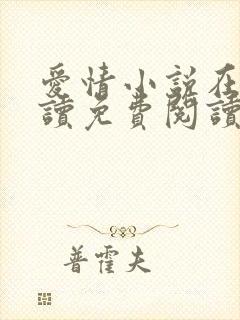 愛情小說在
讀免費閱讀
普霍夫